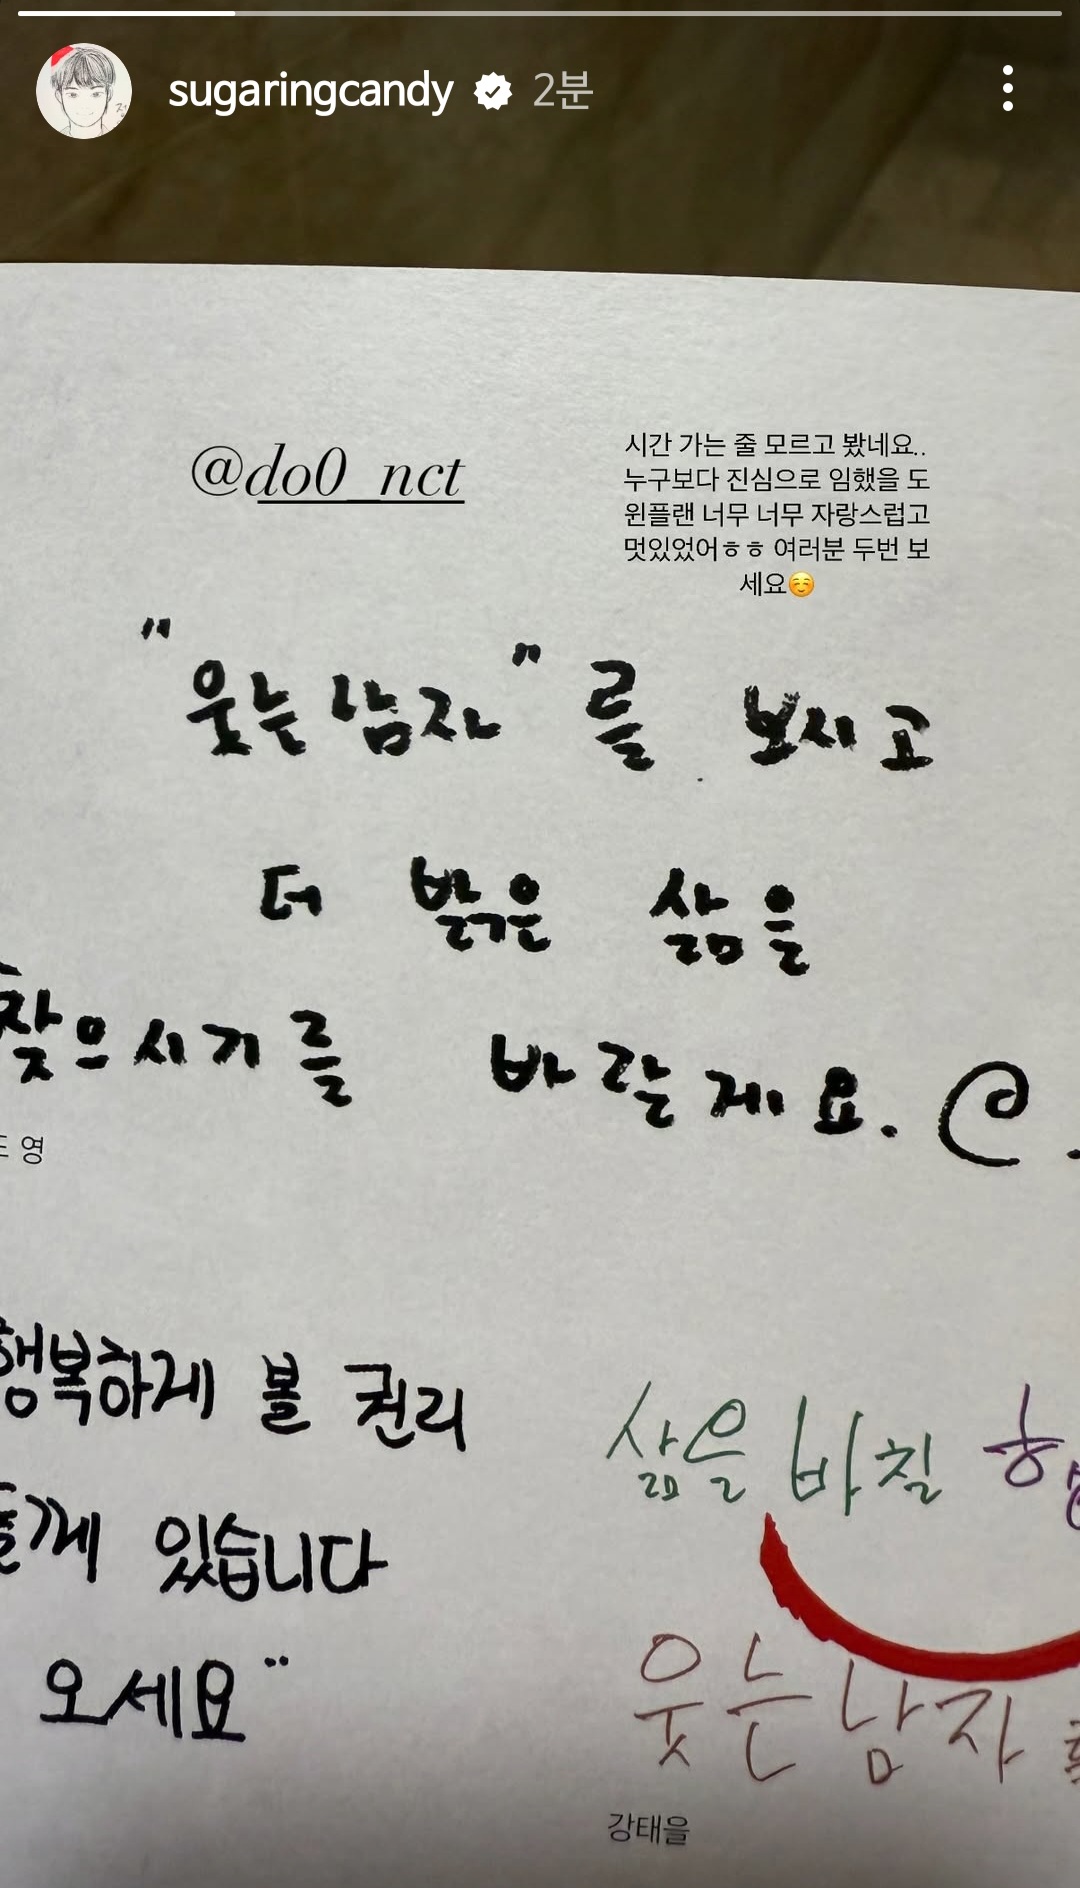 sugaringcandy 2분
@do0_nct
시간 가는 줄 모르고 봤네요..
누구보다 진심으로 임했을 도
윈플랜 너무 너무 자랑스럽고
멋있었어ㅎㅎ 여러분 두번 보
세요☺️
"웃는남자"를 보시고
더 밝은 삶을
찾으시기를 바랄게요.
영
행복하게 볼 권리
있습니다
오세요"
삶을 바칠
웃는남자
강태을